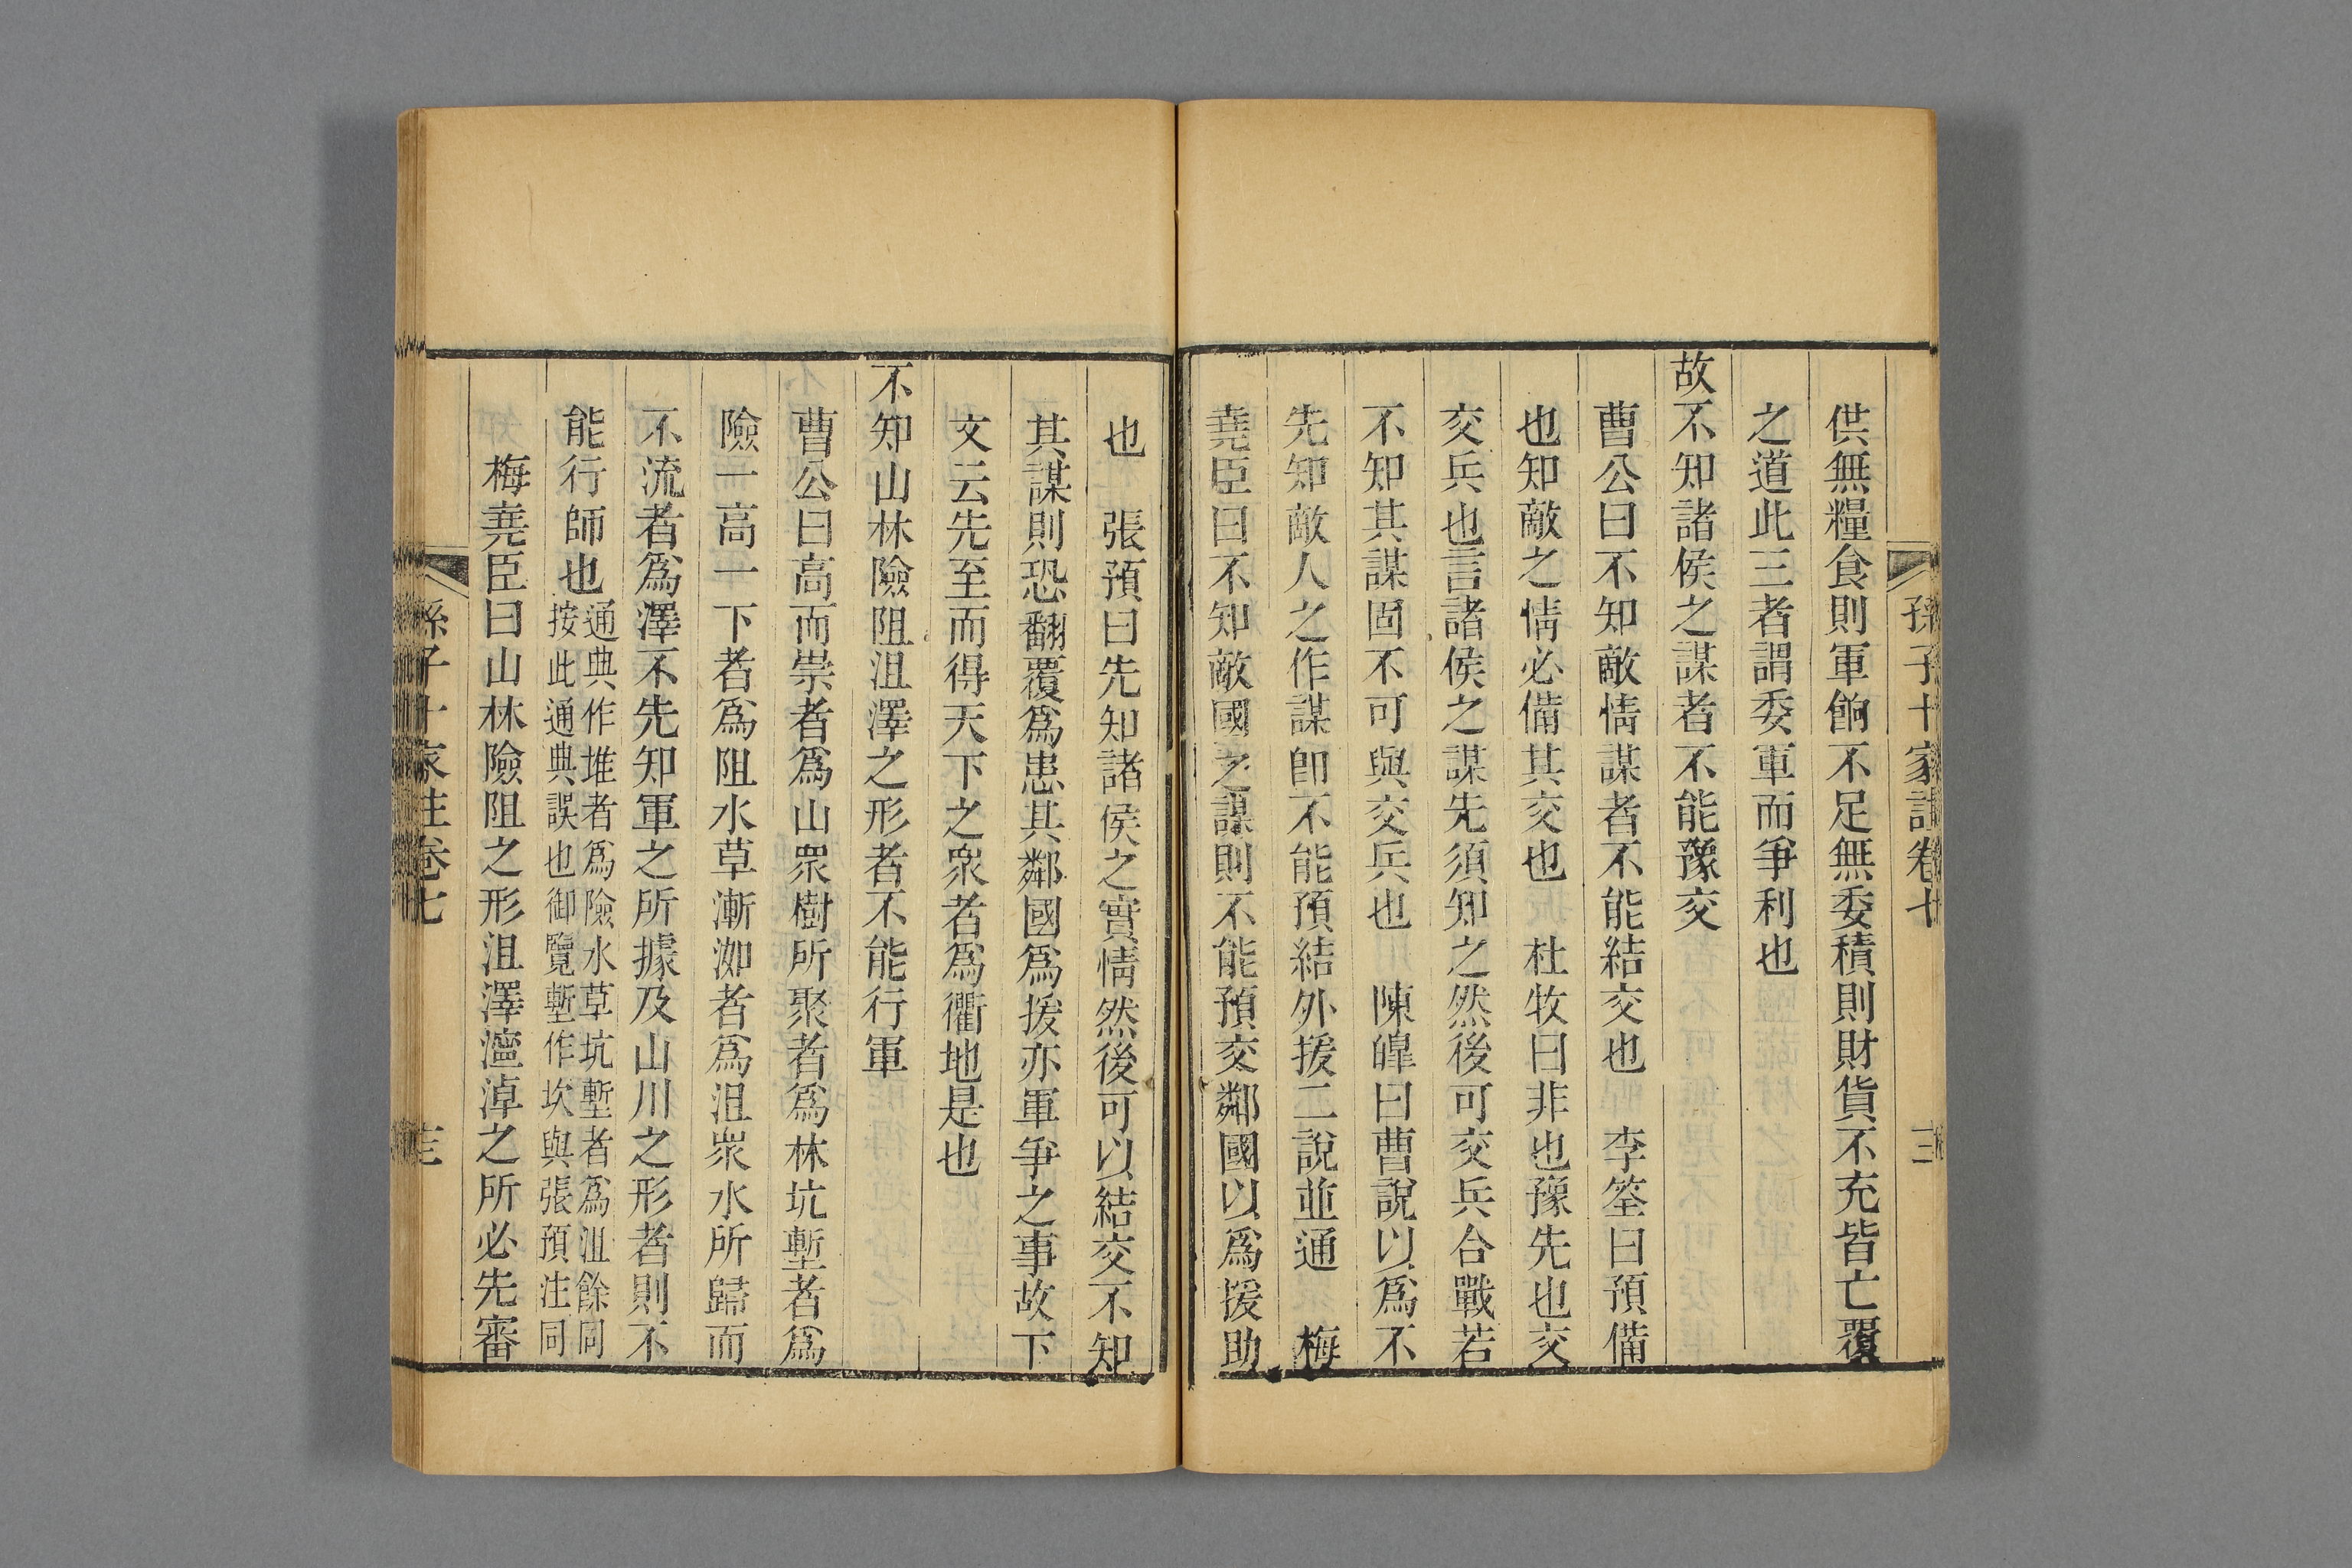 孫子十家註卷七
供無糧食則軍餉不足無委積則財貨不充皆亡覆
之道此三者謂委軍而爭利也
故不知諸侯之謀者不能豫交
曹公曰不知敵情謀者不能結交也 李筌曰預備
也知敵之情必備其交也 杜牧曰非也豫先也交
交兵也言諸侯之謀先須知之然後可交兵合戰若
不知其謀固不可與交兵也 陳皥曰曹說以爲不
先知敵人之作謀卽不能預結外援二說並通 梅
堯臣曰不知敵國之謀則不能預交鄰國以爲援助
也 張預曰先知諸侯之實情然後可以結交不知
其謀則恐翻覆爲患其鄰國爲援亦軍爭之事故下
文云先至而得天下之衆者爲衢地是也
不知山林險阻沮澤之形者不能行軍
曹公曰高而崇者爲山眾樹所聚者爲林坑塹者爲
險一高一下者爲阻水草漸洳者爲沮眾水所歸而
不流者爲澤不先知軍之所據及山川之形者則不
能行師也
通典作堆者爲險水草坑塹者爲沮餘同
按此通典誤也御覽塹作坎與張預注同
梅堯臣曰山林險阻之形沮澤濘淖之所必先審
孫子十家註卷七